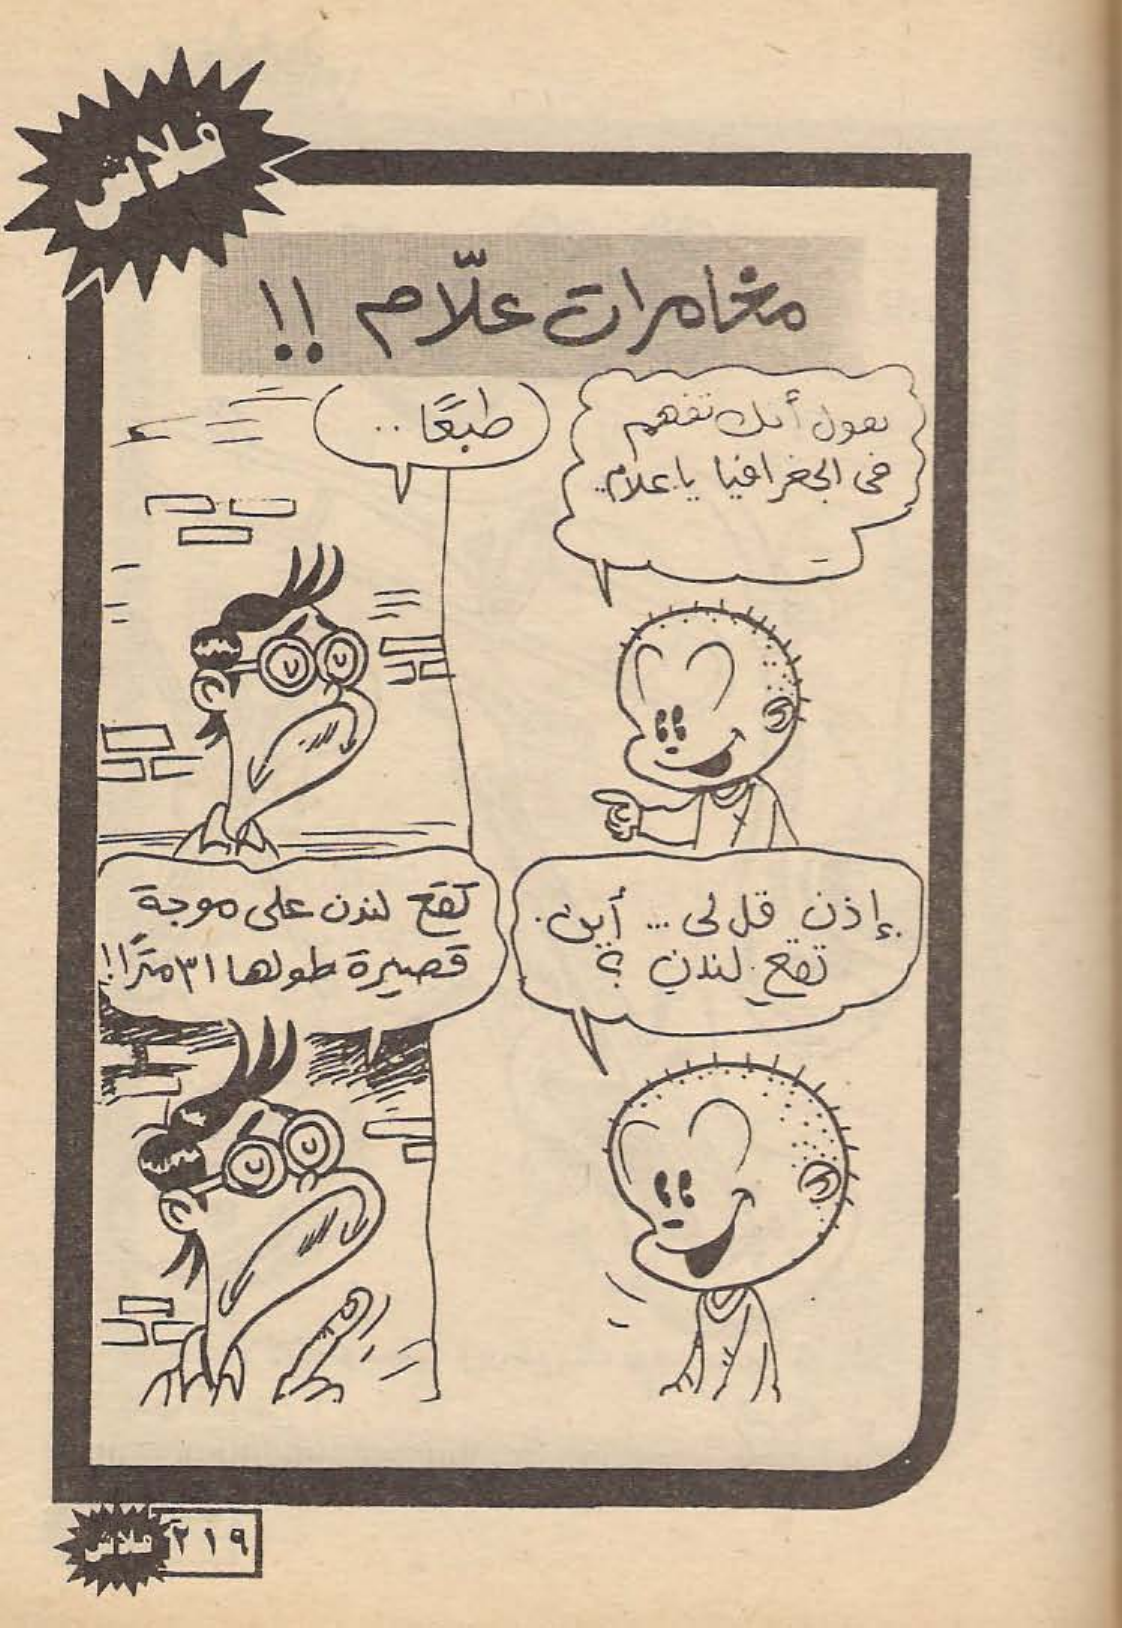 فلاش
مغامرات علّام !!
تقول أنك تفهم
فى الجغرافيا يا علام..
طبعًا ..
إذن قل لى ... أين
تقع لندن ؟
تقع لندن على موجة
قصيرة طولها ٣١ مترًا!!
٢١٩
فلاش